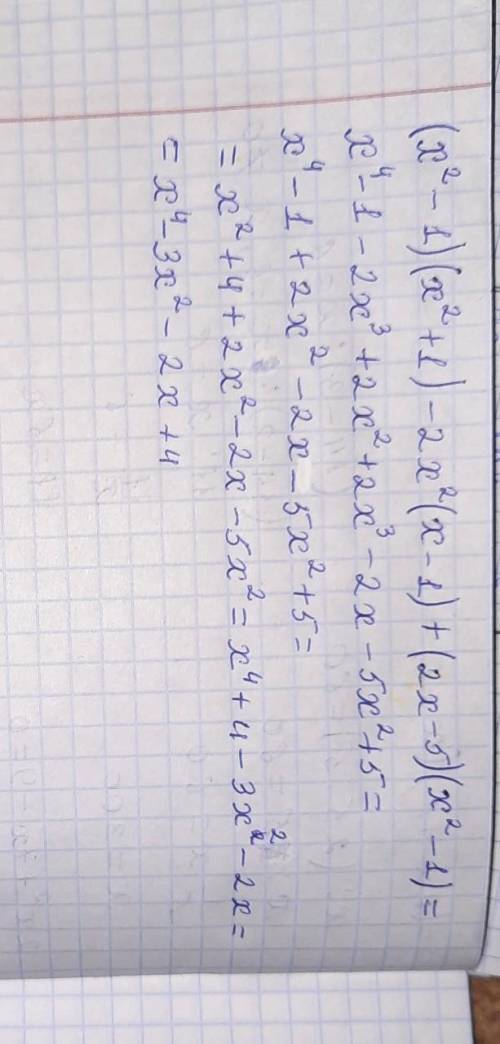 (x² - 1)(x² + 1) - 2x²(x - 1) + (2x - 5)(x² - 1) =
x⁴ - 1 - 2x³ + 2x² + 2x³ - 2x - 5x² + 5 =
x⁴ - 1 + 2x² - 2x - 5x² + 5 =
= x² + 4 + 2x² - 2x - 5x² = x⁴ + 4 - 3x² - 2x =
= x⁴ - 3x² - 2x + 4